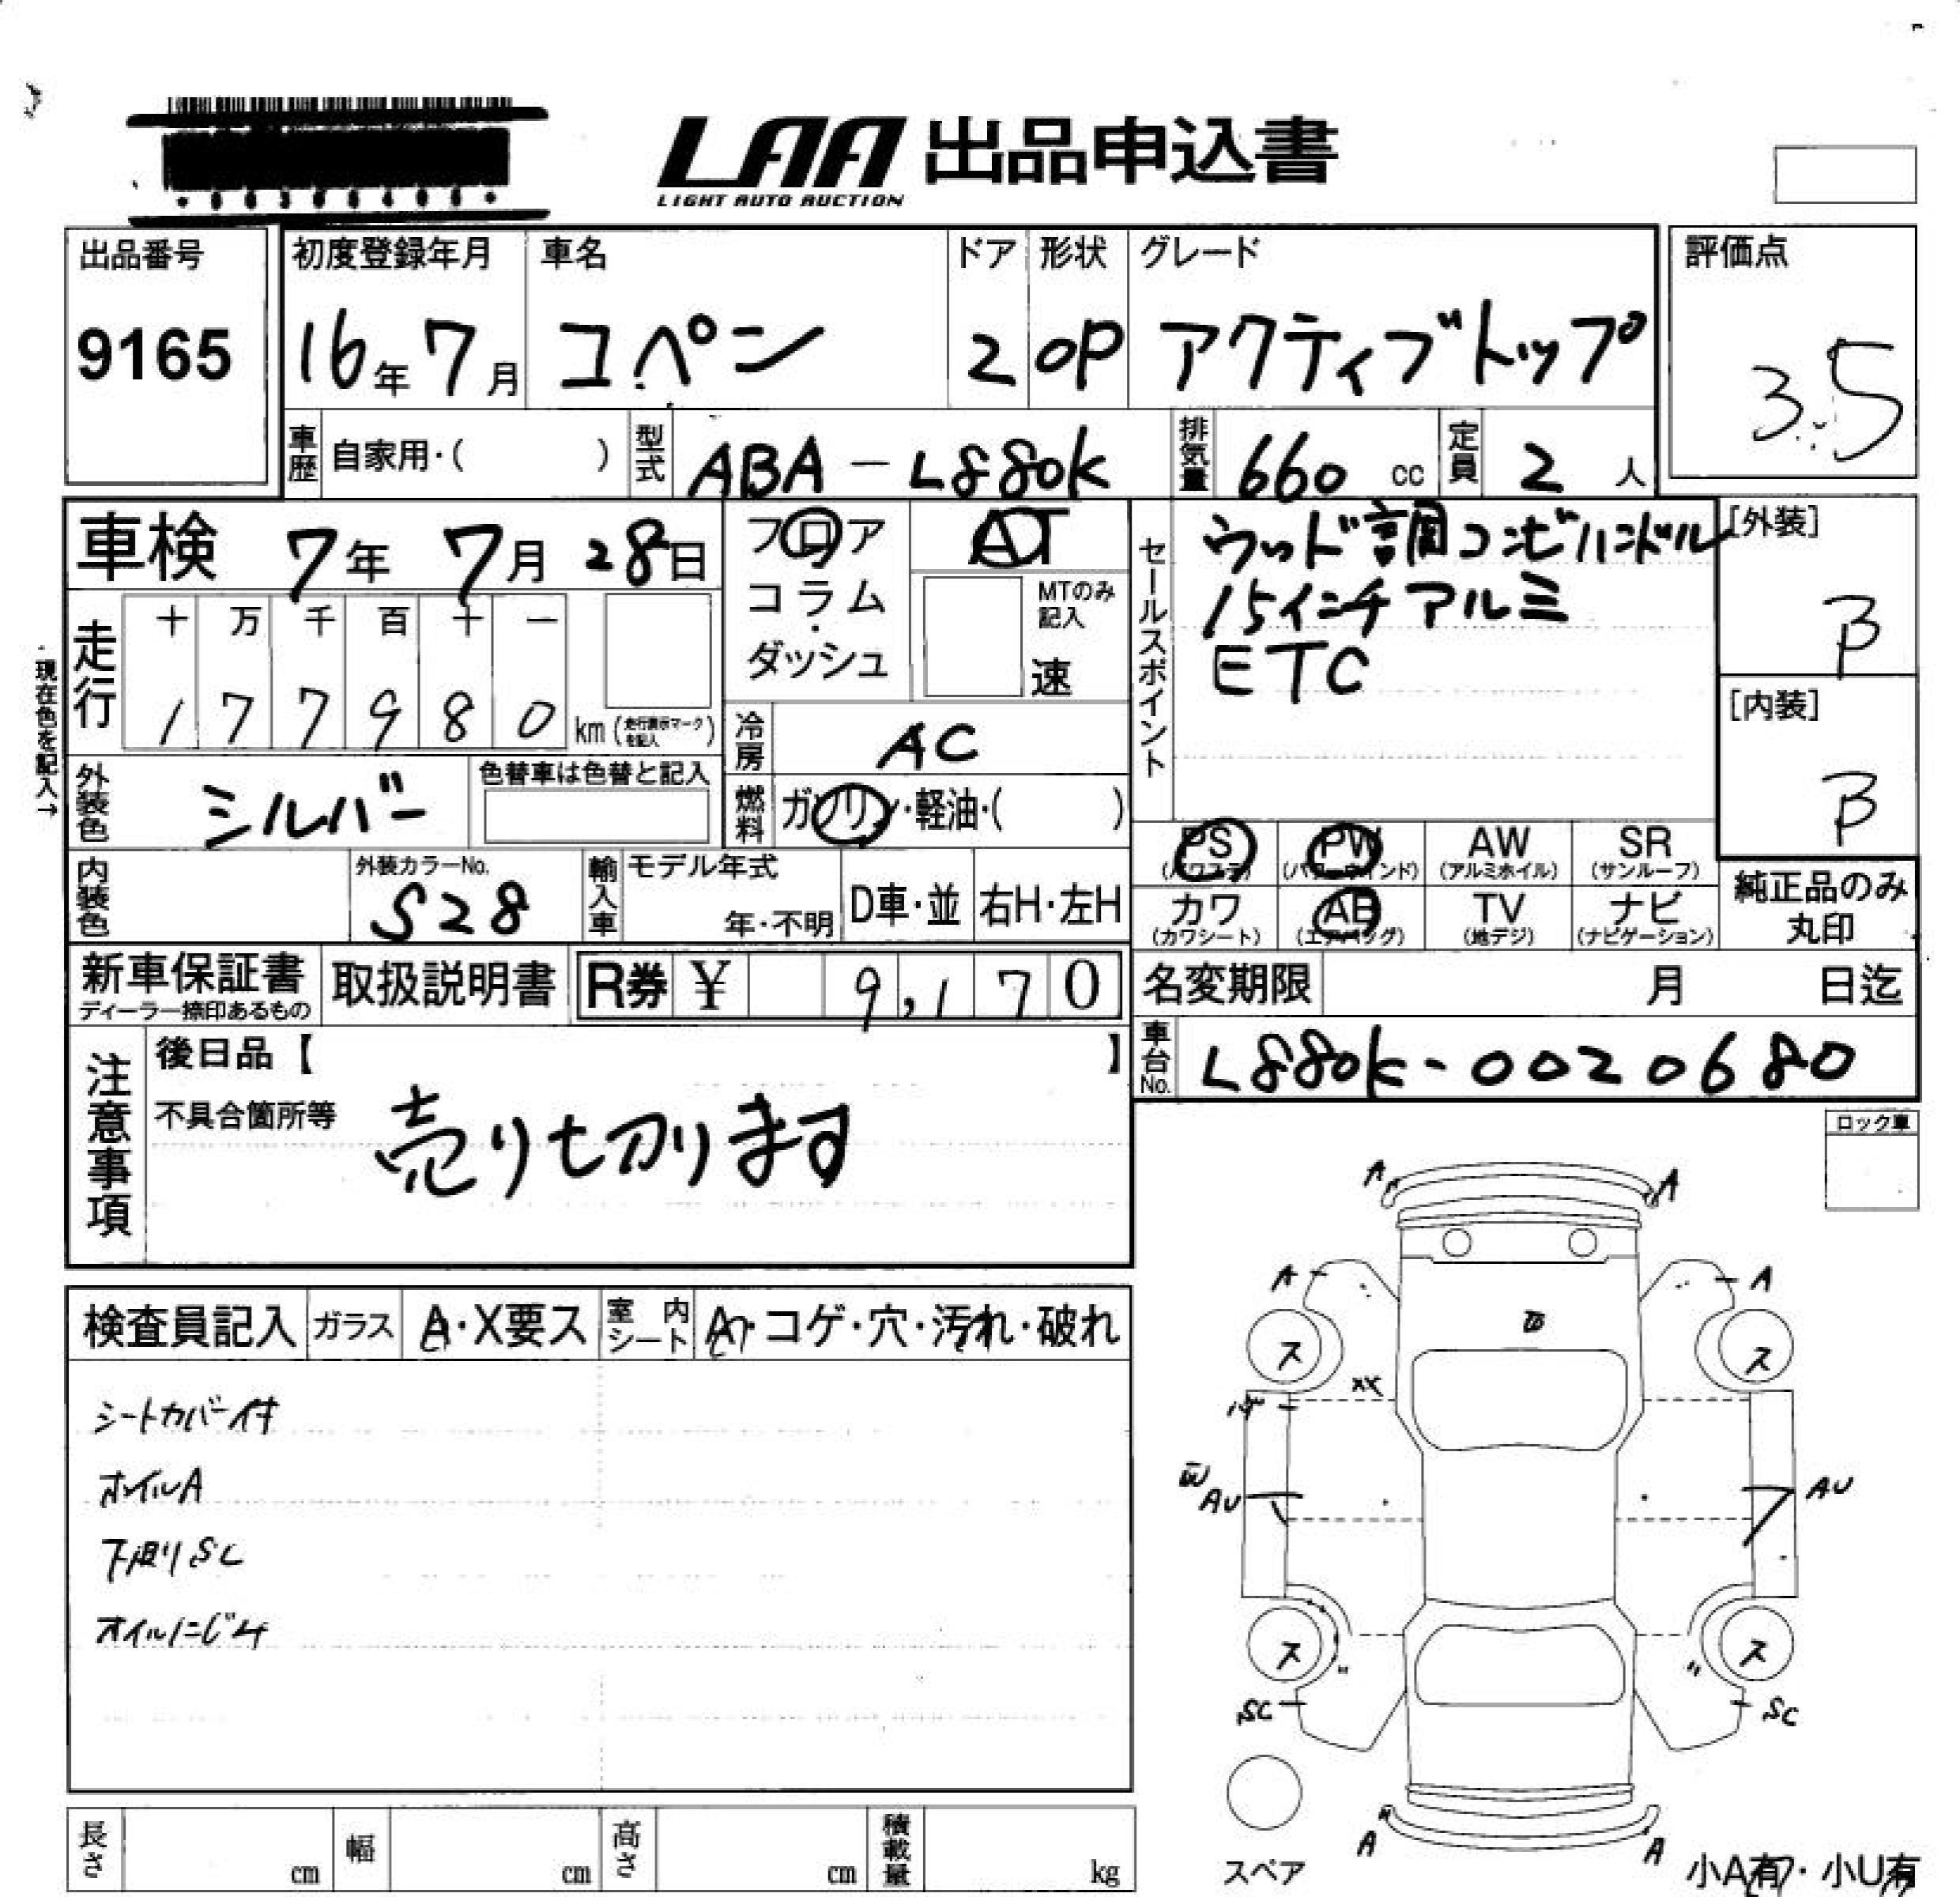 LAA 出品申込書
LIGHT AUTO AUCTION
出品番号 初度登録年月 車名 ドア 形状 グレード 評価点
9165 16年 7月 コペン 2 OP アクティブトップ 3.5
車歴 自家用・( ) 型式 ABA-L880K 排気量 660 cc 定員 2 人
車検 7年 7月 28日 フロア AT セールスポイント ウッド調コンビハンドル [外装]
コラム・ MTのみ記入 15インチアルミ B
ダッシュ 速 ETC
現在色を記入→
走行 十 万 千 百 十 一
1 7 7 9 8 0 km (走行表示マークを記入) 冷房 AC [内装]
外装色 シルバー 色替車は色替と記入 燃料 ガソリン・軽油・( ) B
PS (パワステ) PW (パワーウインド) AW (アルミホイル) SR (サンルーフ)
内装色 外装カラーNo. S28 輸入車 モデル年式 年・不明 D車・並 右H・左H
カワ (カワシート) AB (エアバッグ) TV (地デジ) ナビ (ナビゲーション) 純正品のみ丸印
新車保証書 ディーラー捺印あるもの 取扱説明書 R券 ¥ 9,170 名変期限 月 日迄
注意事項 後日品【 】 車台No. L880K-0020680
不具合箇所等 売り切ります
ロック車
A A
A A
検査員記入 ガラス A・X要ス 室内シート A・コゲ・穴・汚れ・破れ
ス ス
XX
シートカバー付
ホイルA
AU AU
下廻りSC
オイルにじみ
ス ス
SC SC
A A
長さ cm 幅 cm 高さ cm 積載量 kg
スペア
小A有・小U有